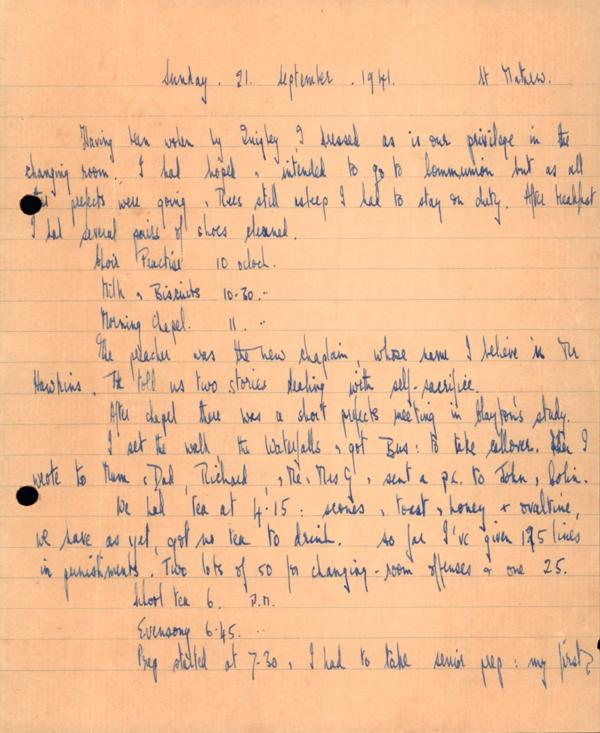 Sunday . 21 . September . 1941. St Mathew.
Having been woken by Quigley I dressed as is our privilege in the
changing room. I had hoped , intended to go to Communion but as all
the prefects were going , Trees still asleep I had to stay on duty. After breakfast
I had several pairs of shoes cleaned.
Choir Practise 10 oclock.
Milk , Biscuits 10-30. "
Morning Chapel. 11. "
The preacher was the new chaplain, whose name I believe is Mr
Hawkins. He told us two stories dealing with self-sacrifice.
After chapel there was a short prefects meeting in study.
I set the walk the Waterfalls , got Bus: to take callover. I
wrote to Mum , Dad, Richard, , Mr , Mrs G , sent a p.c. to John , Colin.
We had tea at 4.15: scones, toast , honey + ovaltine,
we have as yet, got no tea to drink. So far I've given 125 lines
in punishments. Two lots of 50 for changing-room offenses + one 25.
School tea 6. P.M.
Evensong 6.45. "
Prep started at 7-30 , I had to take senior prep: my first